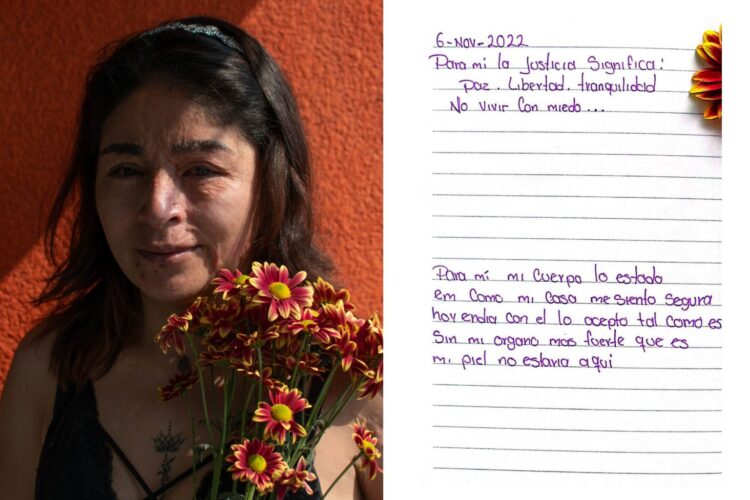 6-Nov-2022
Para mi la Justicia Significa:
Paz. Libertad. tranquilidad
No vivir Con miedo...
Para mí mi Cuerpo lo estado
em Como mi Casa me siento Segura
hoy endia con el lo acepto tal Como es
Sin mi organo más fuerte que es
mi piel no estaria aqui